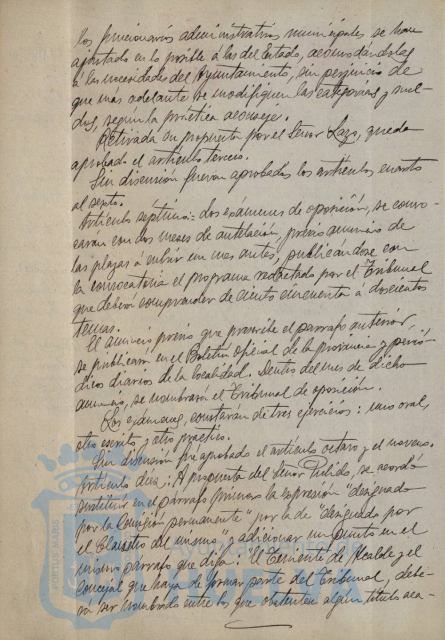 los funcionarios administrativos municipales se han
ajustado en lo posible a las del Estado, acomodándolas
a las necesidades del Ayuntamiento, sin perjuicio de
que más adelante se modifiquen las categorías y suel-
dos, según la práctica aconseje.
Retirada su propuesta por el Señor Lazo, queda
aprobado el artículo tercero.
Sin discusión fueron aprobados los artículos cuarto
al sexto.
Artículo septimo: los exámenes de oposición, se convo-
caran con dos meses de antelación, previo anuncio de
las plazas a cubrir un mes antes, publicándose con
la convocatoria el programa redactado por el Tribunal
que deberá comprender de ciento cincuenta a doscientos
temas.
El anuncio previo que prescribe el párrafo anterior,
se publicará en el Boletín Oficial de la Provincia y perió-
dicos diarios de la localidad. Dentro del mes de dicho
anuncio, se nombrará el Tribunal de oposición.
Los exámenes, constarán de tres ejercicios: uno oral,
otro escrito y otro práctico.
Sin discusión fue aprobado el artículo octavo y el noveno.
Artículo diez: A propuesta del Señor Pulido, se acordó
sustituir en el párrafo primero la expresión "designado
por la Comisión permanente" por la de "designado por
el Claustro del mismo, y adicionar un punto en el
mismo párrafo que diga: El Teniente de Alcalde y el
Concejal que haya de formar parte del Tribunal, debe-
rá ser nombrado entre los que ostenten algún título aca-